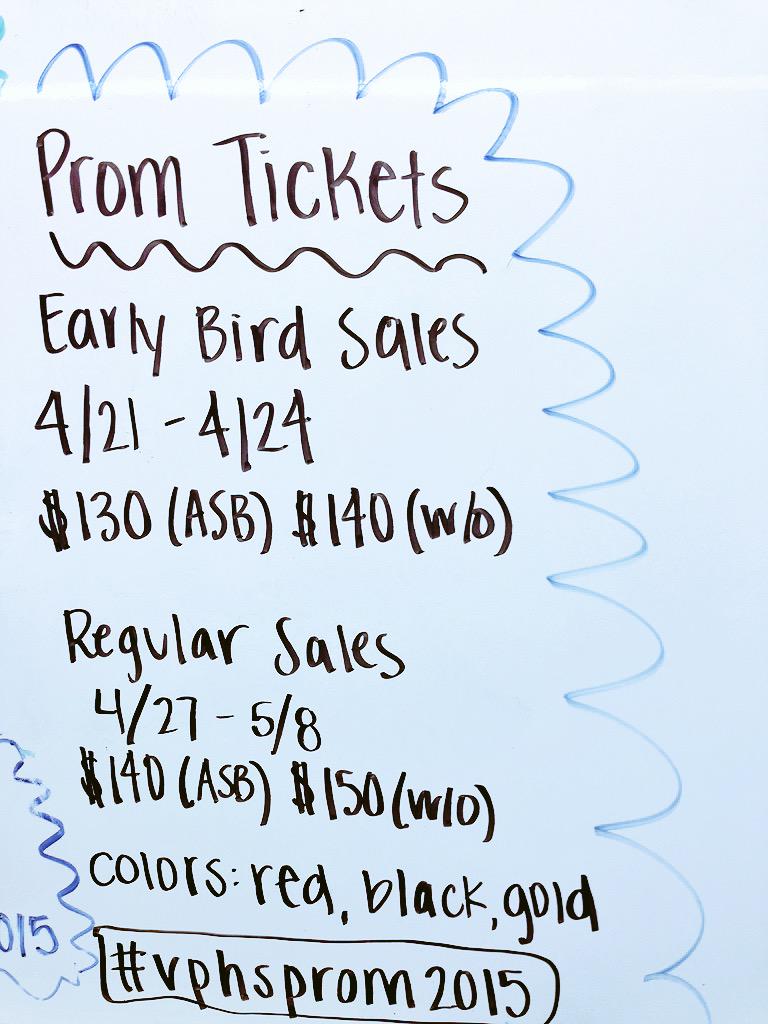 Prom Tickets
Early Bird Sales
4/21 - 4/24
$130 (ASB) $140 (w/o)
Regular Sales
4/27 - 5/8
$140 (ASB) $150 (w/o)
colors: red, black, gold
015
#vphsprom2015